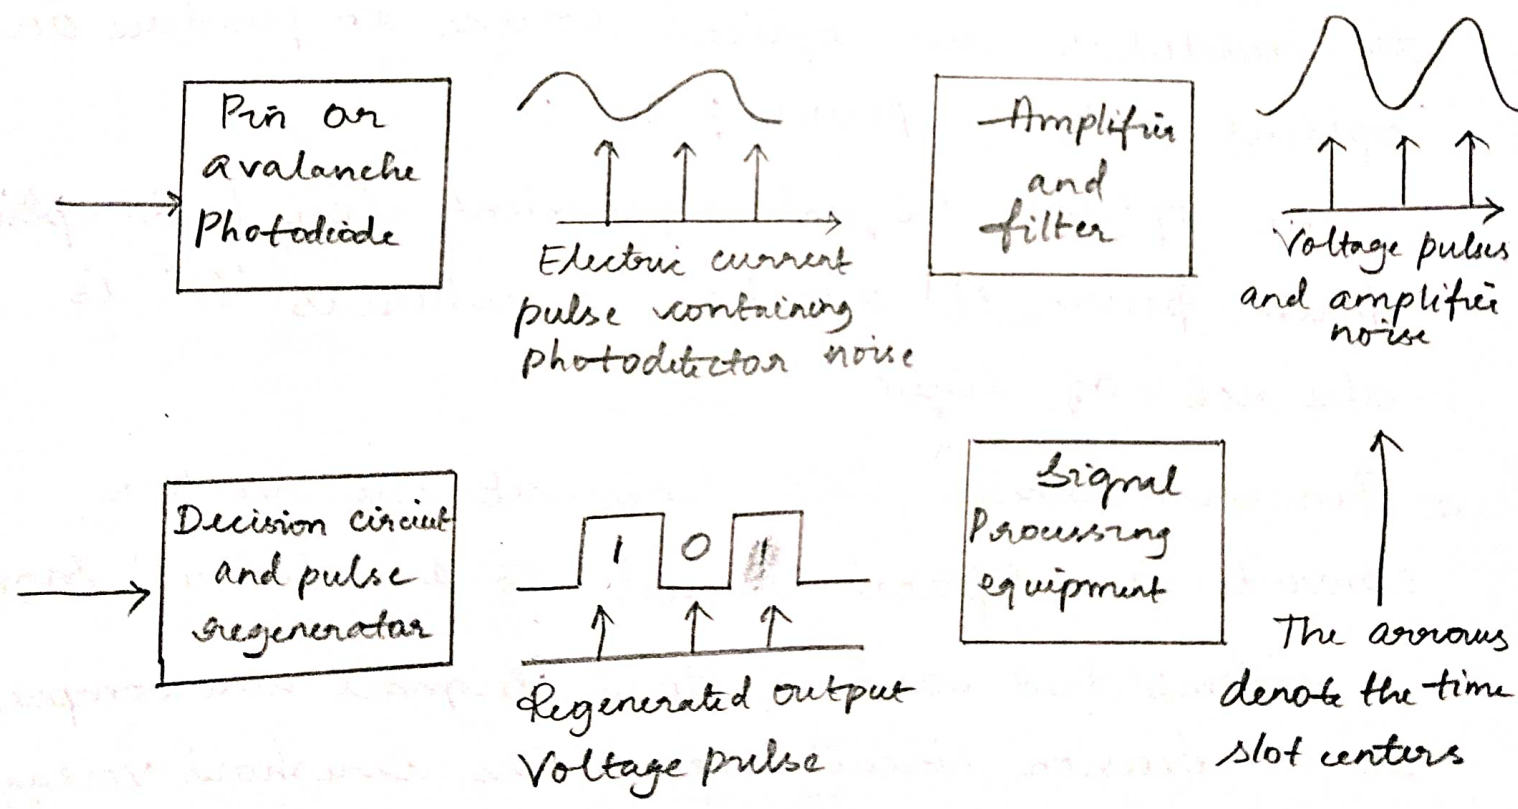 Pin or
avalanche
Photodiode
Electric current
pulse containing
photodetector noise
Amplifier
and
filter
Voltage pulses
and amplifier
noise
Decision circiut
and pulse
regenerator
1 0 1
Regenerated output
Voltage pulse
Signal
Processing
equipment
The arrows
denote the time
slot centers